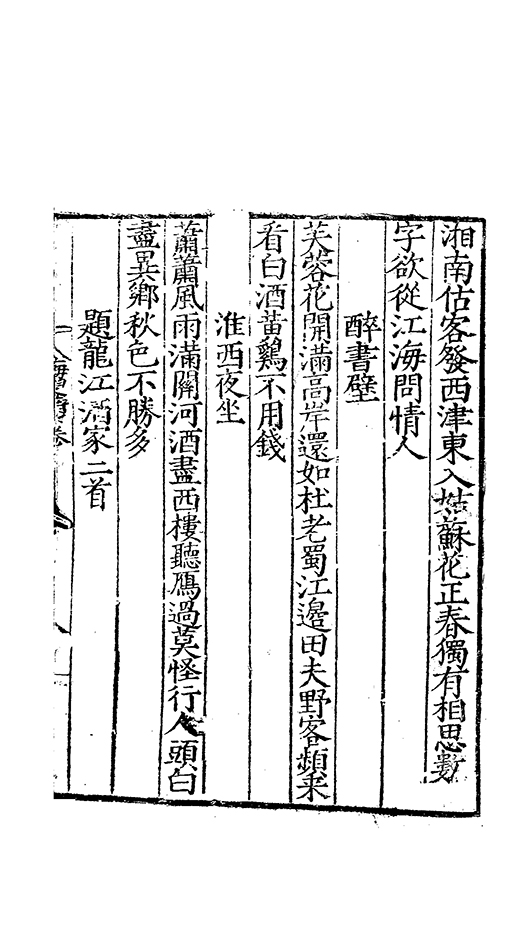 湘南估客發西津東入姑蘇花正春獨有相思數
字欲從江海問情人
醉書壁
芙蓉花開滿高岸還如杜老蜀江邊田夫野客頻來
看白酒黃鷄不用錢
淮西夜坐
蕭蕭風雨滿關河酒盡西樓聽鴈過莫怪行人頭白
盡異鄉秋色不勝多
題龍江酒家二首